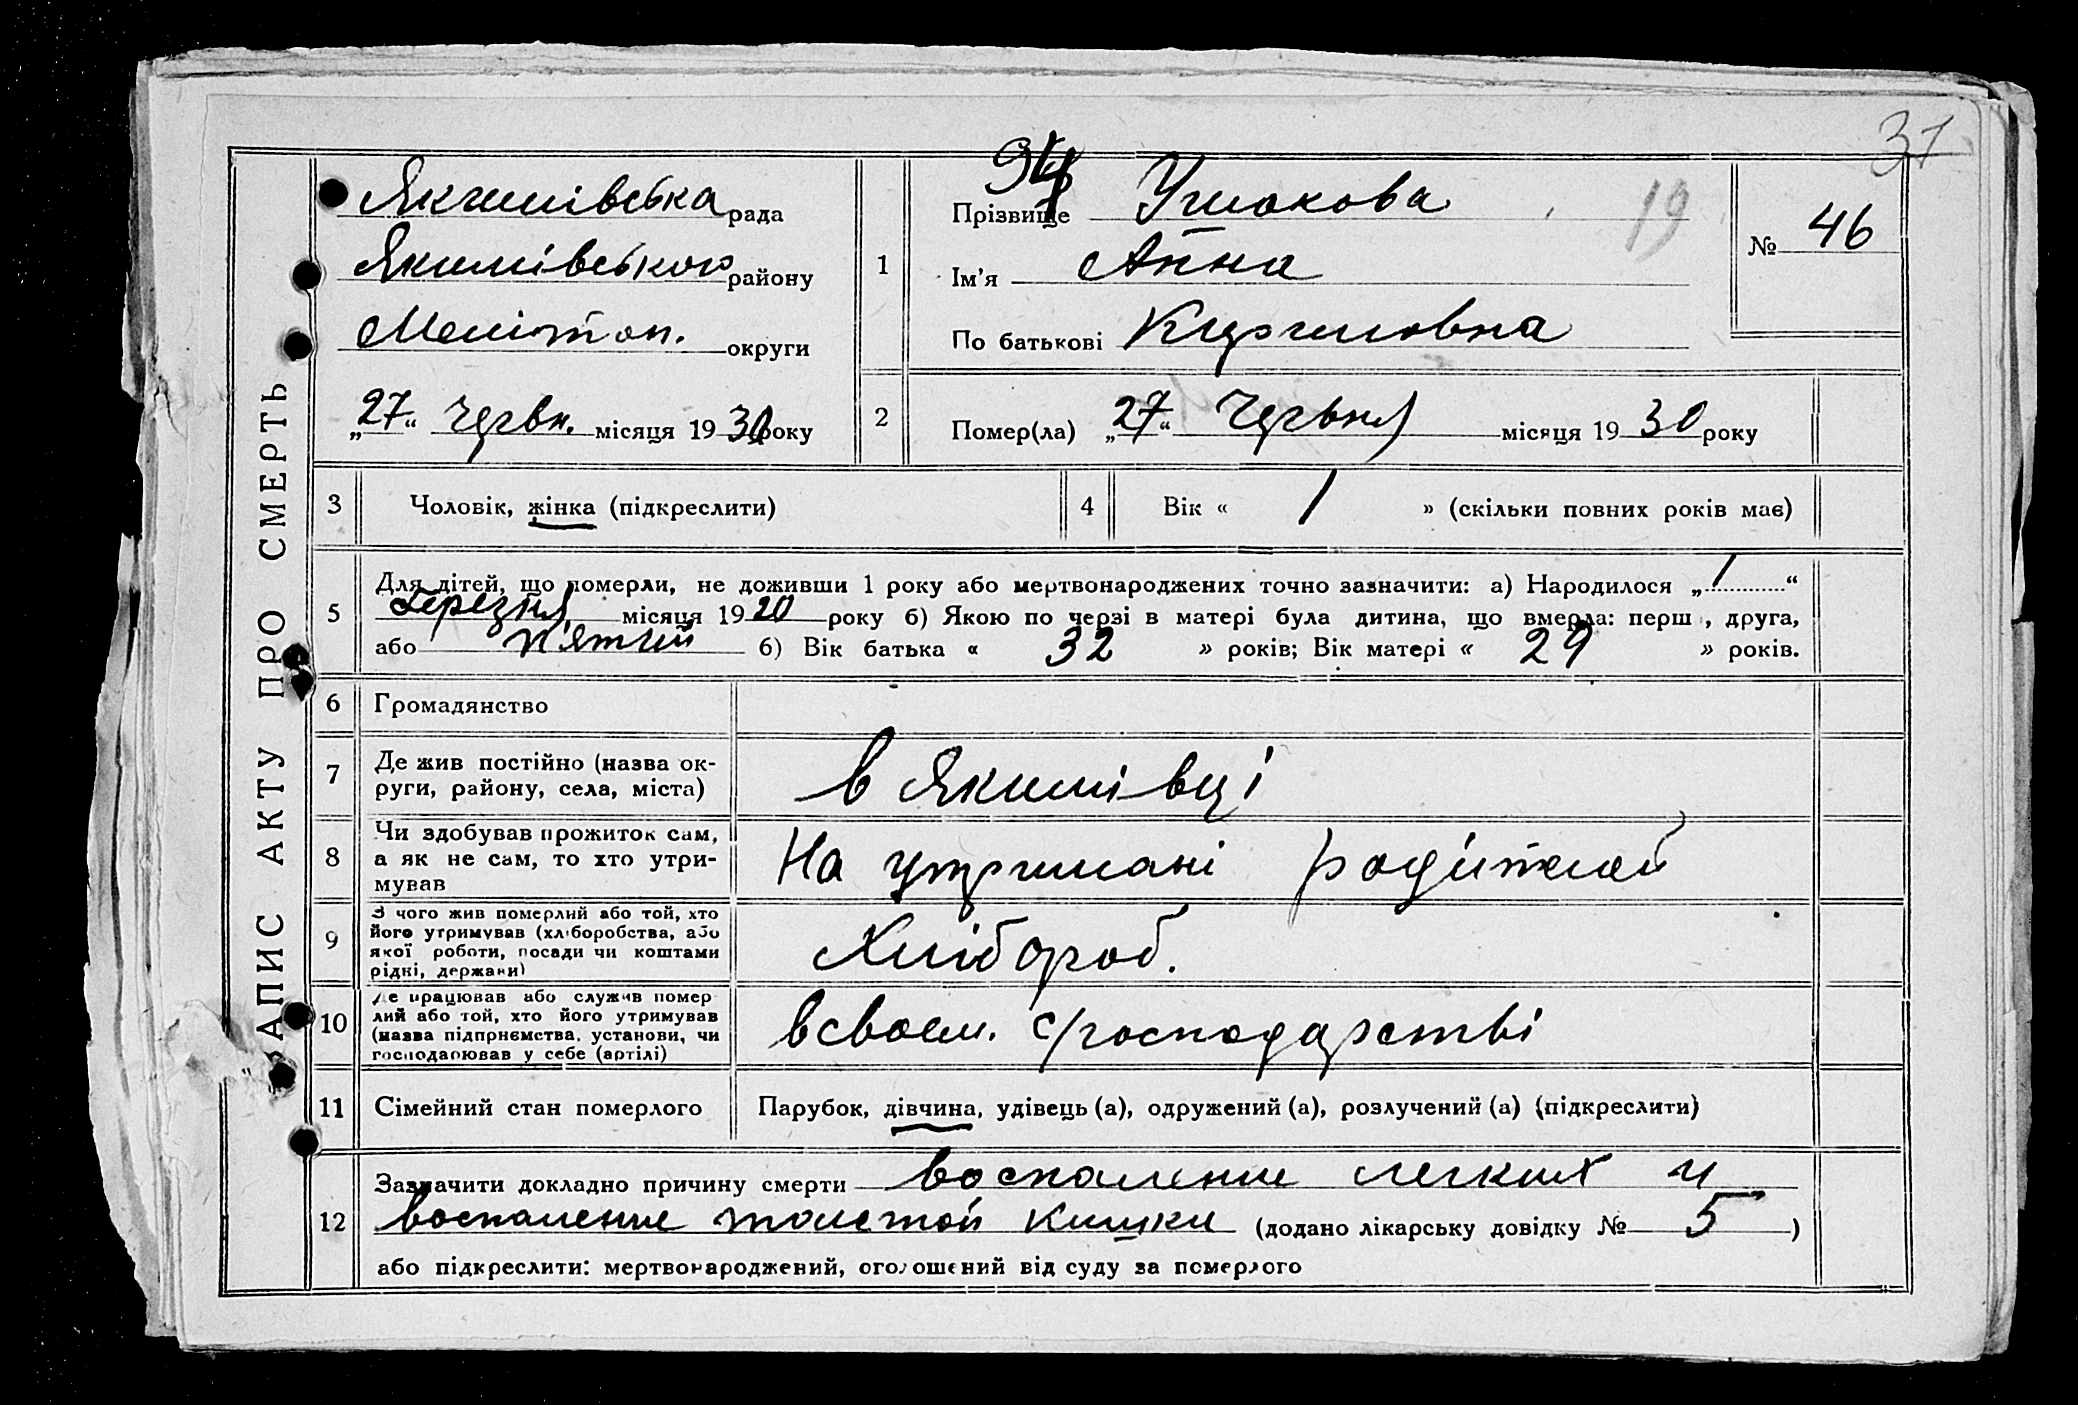 37
94
19
ЗАПИС АКТУ ПРО СМЕРТЬ
Якимівська рада
Якимівського району
Мелітоп. округи
„27“ червн. місяця 1930 року
1
Прізвище Ушакова
Ім'я Анна
По батькові Кириловна
№ 46
2
Помер(ла) „27“ Червня місяця 1930 року
3
Чоловік, жінка (підкреслити)
4
Вік « 1 » (скільки повних років має)
5
Для дітей, що померли, не доживши 1 року або мертвонароджених точно зазначити: а) Народилося „1“
березня місяця 1920 року б) Якою по черзі в матері була дитина, що вмерла: перш, друга,
або п'ятий б) Вік батька « 32 » років; Вік матері « 29 » років.
6
Громадянство
7
Де жив постійно (назва ок-
руги, району, села, міста)
в Якимівці
8
Чи здобував прожиток сам,
а як не сам, то хто утри-
мував
На утримані родителей
9
З чого жив померлий або той, хто
його утримував (хліборобства, або
якої роботи, посади чи коштами
рідні, держави)
Хлібороб.
10
Де працював або служив помер
лий або той, хто його утримував
(назва підприємства, установи, чи
господарював у себе (артілі)
в своем. с/господарстві
11
Сімейний стан померлого
Парубок, дівчина, удівець (а), одружений (а), розлучений (а) (підкреслити)
12
Зазначити докладно причину смерти воспаление легких и
воспаление толстой кишки (додано лікарську довідку № 5)
або підкреслити: мертвонароджений, оголошений від суду за померлого